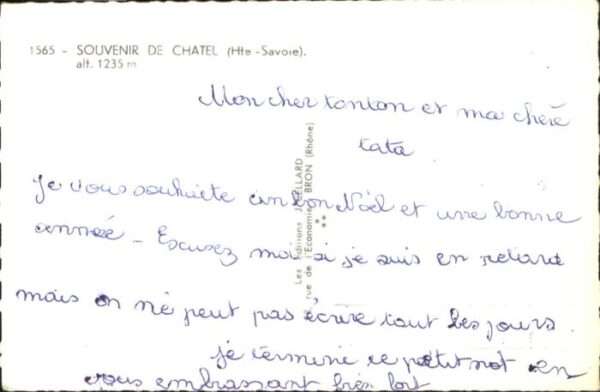 1565 - SOUVENIR DE CHATEL (Hte-Savoie).
alt. 1235 m
Mon cher tonton et ma chère
tata
Je vous souhaite un bon Noël et une bonne
année - Excusez moi si je suis en retard
mais on ne peut pas écrire tout les jours.
je termine ce petit mot en
vous embrassant très fort
Les Editions J.
rue de l'Economie BRON (Rhône)
**